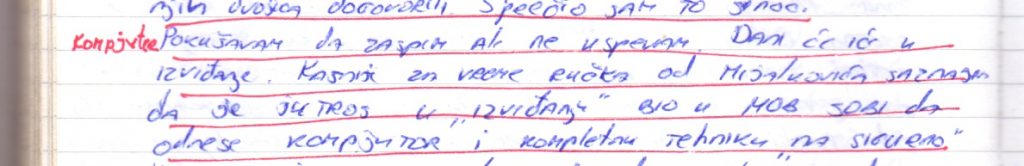 njih dvojica dogovorili. Sprečio sam to sinoć.
Kompjuter Pokušavam da zaspim ali ne uspevam. Dan će ići u
izviđanje. Kasnije za vreme ručka od Mijalkovića saznajem
da je jutros u „izviđanju" bio u mob sobi da
odnese kompjutor i kompletnu tehniku „na sigurno"